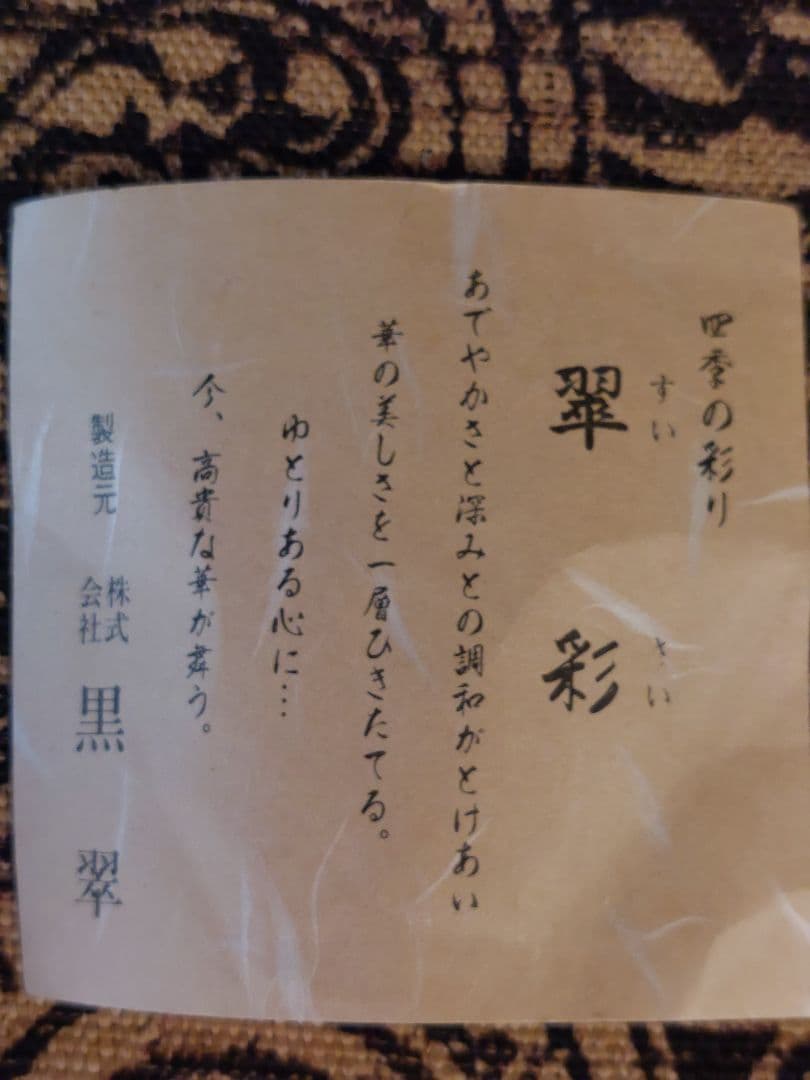 四季の彩り
すい さい
翠彩
あでやかさと深みとの調和がとけあい
華の美しさを一層ひきたてる。
ゆとりある心に…
今、高貴な華が舞う。
製造元 株式会社 黒翠